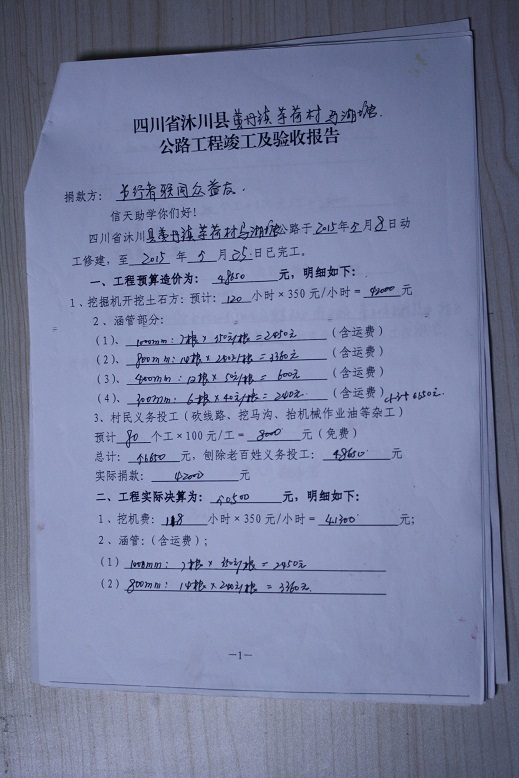 四川省沐川县黄丹镇芋荷村马湖塘
公路工程竣工及验收报告
捐款方：书行者联闻众益友.
信天助学你们好！
四川省沐川县黄丹镇芋荷村马湖塘公路于2015年5月8日动
工修建，至 2015 年 5 月25日已完工。
一、工程预算造价为：48650 元，明细如下：
1、挖掘机开挖土石方：预计：120 小时×350元/小时=42000元
2、涵管部分：
（1）、1000mm：7根×350元/根=2450元（含运费）
（2）、800mm：14根×240元/根=3360元（含运费）
（3）、400mm：12根×50元/根=600元（含运费）
（4）、300mm：6根×40元/根=240元（含运费）小计6650元
3、村民义务投工（砍线路、挖马沟、抬机械作业油等杂工）
预计 80 个工×100元/工= 8000 元（免费）
总计：56650 元，刨除老百姓义务投工：48650 元
实际捐款：42000 元
二、工程实际决算为：50500 元，明细如下：
1、挖机费：118 小时×350元/小时= 41300 元；
2、涵管：（含运费）；
（1）1000mm：7根×350元/根=2450元
（2）800mm：14根×240元/根=3360元.
—1—